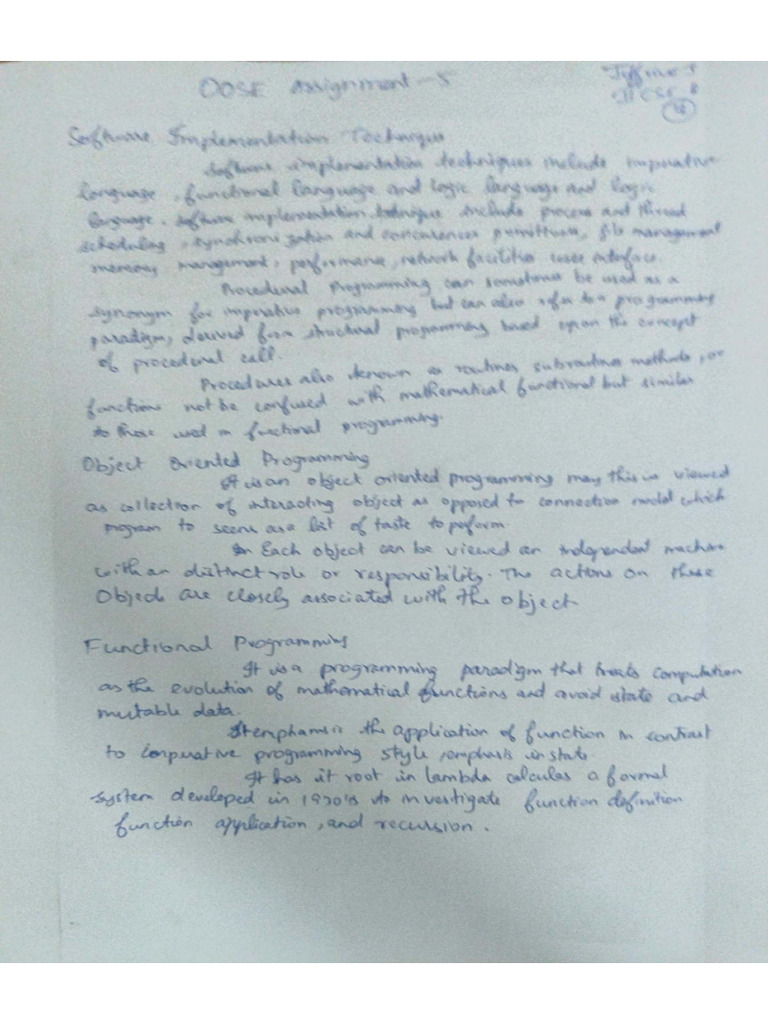 OOSE assignment - 5
II CSE B
Software Implementation Technique
Software implementation techniques include imperative
language, functional language and logic language and logic
language. Software implementation technique include process and thread
scheduling, synchronization and concurrences, file management
memory management, performance, network facilities user interface.
Procedural Programming can sometimes be used as a
synonym for imperative programming but can also refer to a programming
paradigm, derived from structural programming based upon the concept
of procedural call.
Procedures also known as routines, subroutines methods, or
functions not be confused with mathematical functional but similar
to those used in functional programming.
Object Oriented Programming
It is an object oriented programming may this is viewed
as collection of interacting object as opposed to connection model which
program to seens as a list of taste to perform.
Each object can be viewed an independent machine
with an distinct role or responsibility. The actions on these
Objects are closely associated with the object
Functional Programming
It is a programming paradigm that treats computation
as the evolution of mathematical functions and avoid state and
mutable data.
It emphansis the application of function in contract
to imperative programming style, emphasis in state.
It has it root in lambda calculas a formal
system developed in 1930's to investigate function definition
function application, and recursion.